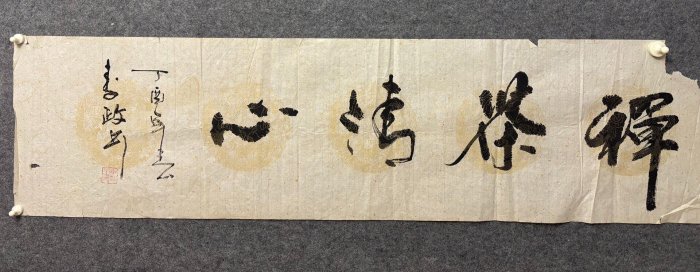 禪茶清心
丁酉年
李政书